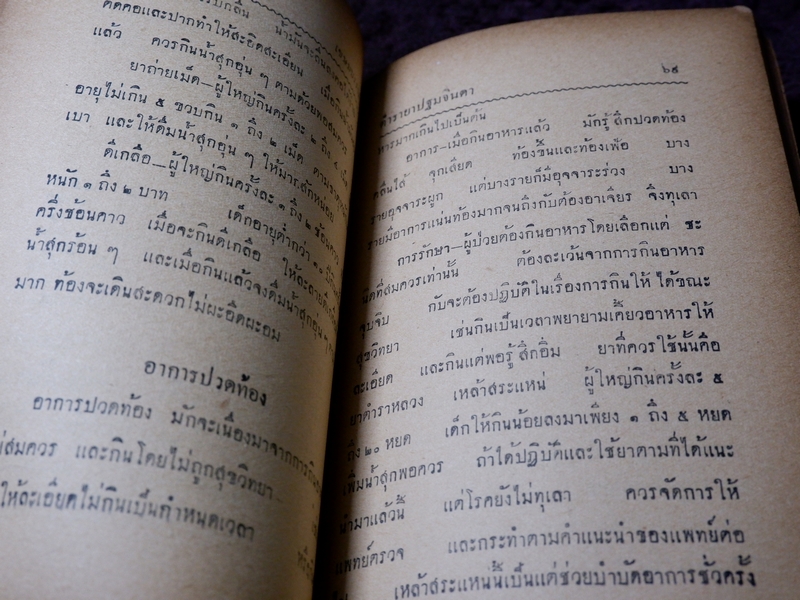 คัดคอและปากทำให้สะอิดสะเอียน
แล้ว ควรกินน้ำสุกอุ่น ๆ ตามด้วยพอสมควร
ยาถ่ายเม็ด—ผู้ใหญ่กินครั้งละ ๒ ถึง
อายุไม่เกิน ๕ ขวบกิน ๑ ถึง ๒ เม็ด
เบา และให้ดื่มน้ำสุกอุ่น ๆ ให้มากสักหน่อย
ดีเกลือ—ผู้ใหญ่กินครั้งละ ๑ ถึง ๒ ช้อนคาว
หนัก ๑ ถึง ๒ บาท เด็กอายุต่ำกว่า ๑๐
ครึ่งช้อนคาว เมื่อจะกินดีเกลือ ให้ละลาย
น้ำสุกร้อน ๆ และเมื่อกินแล้วจงดื่มน้ำสุกอุ่น ๆ
มาก ท้องจะเดินสะดวกไม่ผะอืดผะอม
อาการปวดท้อง
อาการปวดท้อง มักจะเนื่องมาจากการกิน
และกินโดยไม่ถูกสุขวิทยา
ให้ละเอียดไม่กินเป็นกำหนดเวลา
ตำรายาปฐมจินดา ๖๕
หารมากเกินไปเป็นต้น
อาการ—เมื่อกินอาหารแล้ว มักรู้สึกปวดท้อง
คลื่นไส้ จุกเสียด ท้องขึ้นและท้องเฟ้อ บาง
รายอุจจาระผูก แต่บางรายก็มีอุจจาระร่วง บาง
รายมีอาการแน่นท้องมากจนถึงกับต้องอาเจียร จึงทุเลา
การรักษา—ผู้ป่วยต้องกินอาหารโดยเลือกแต่ ชะ
นิดที่สมควรเท่านั้น ต้องละเว้นจากการกินอาหาร
จุบจิบ กับจะต้องปฏิบัติในเรื่องการกินให้ ได้ขณะ
สุขวิทยา เช่นกินเป็นเวลาพยายามเคี้ยวอาหารให้
ละเอียด และกินแต่พอรู้สึกอิ่ม ยาที่ควรใช้นั้นคือ
ยาตำราหลวง เหล้าสระแหน่ ผู้ใหญ่กินครั้งละ ๕
ถึง ๒๐ หยด เด็กให้กินน้อยลงมาเพียง ๑ ถึง ๕ หยด
เพิ่มน้ำสุกพอควร ถ้าได้ปฏิบัติและใช้ยาตามที่ได้แนะ
นำมาแล้วนี้ แต่โรคยังไม่ทุเลา ควรจัดการให้
แพทย์ตรวจ และกระทำตามคำแนะนำของแพทย์ต่อ
เหล้าสระแหน่นี้เป็นแต่ช่วยบำบัดอาการชั่วครั้ง